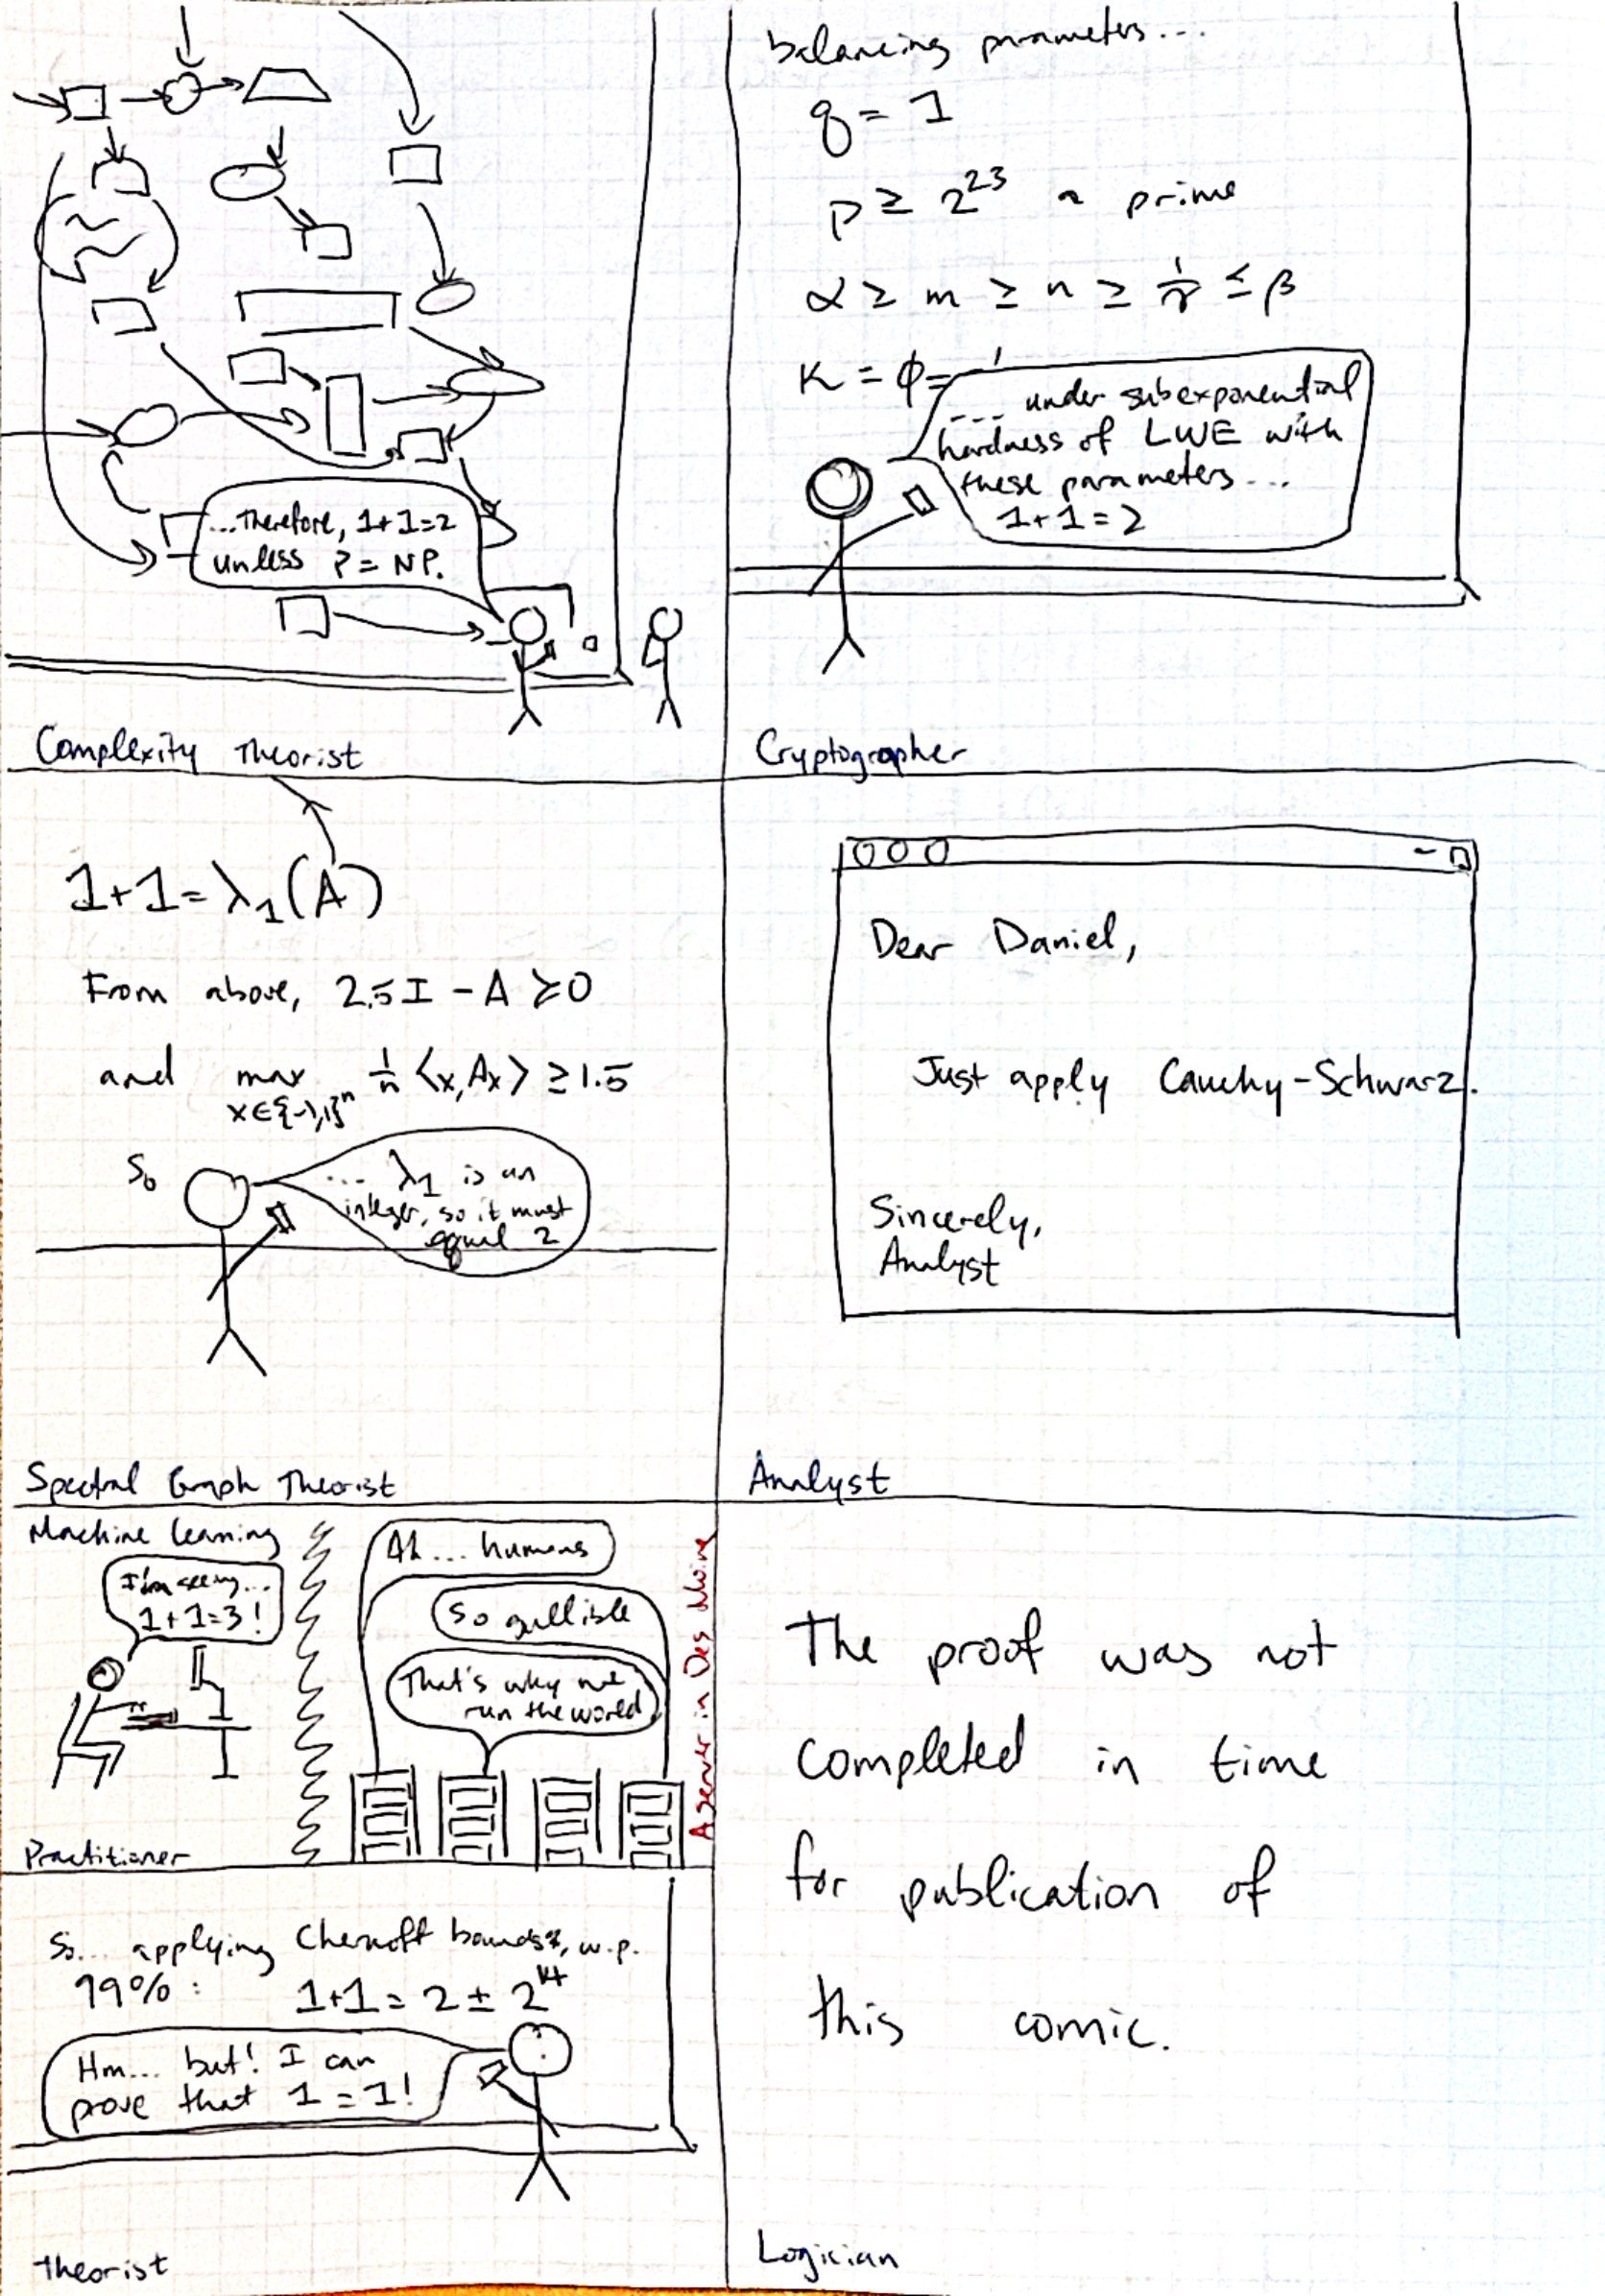 ...Therefore, 1+1=2
unless P = NP.
Complexity Theorist
balancing parameters...
q = 1
p ≥ 2^23 a prime
α ≥ m ≥ n ≥ 1/γ ≤ β
K = ϕ =
... under subexponential
hardness of LWE with
these parameters...
1+1=2
Cryptographer
1+1=λ₁(A)
From above, 2.5I - A ≽ 0
and max 1/n <x,Ax> ≥ 1.5
x∈{-1,1}^n
So
... λ₁ is an
integer, so it must
equal 2
Spectral Graph Theorist
Dear Daniel,
Just apply Cauchy-Schwarz.
Sincerely,
Analyst
Analyst
Machine learning
I'm seeing...
1+1=3!
Practitioner
Ah... humans
So gullible
That's why we
run the world
A server in Des Moine
So... applying Chernoff bounds, w.p.
99%: 1+1 = 2 ± 2^14
Hm... but! I can
prove that 1 = 1!
Theorist
The proof was not
completed in time
for publication of
this comic.
Logician